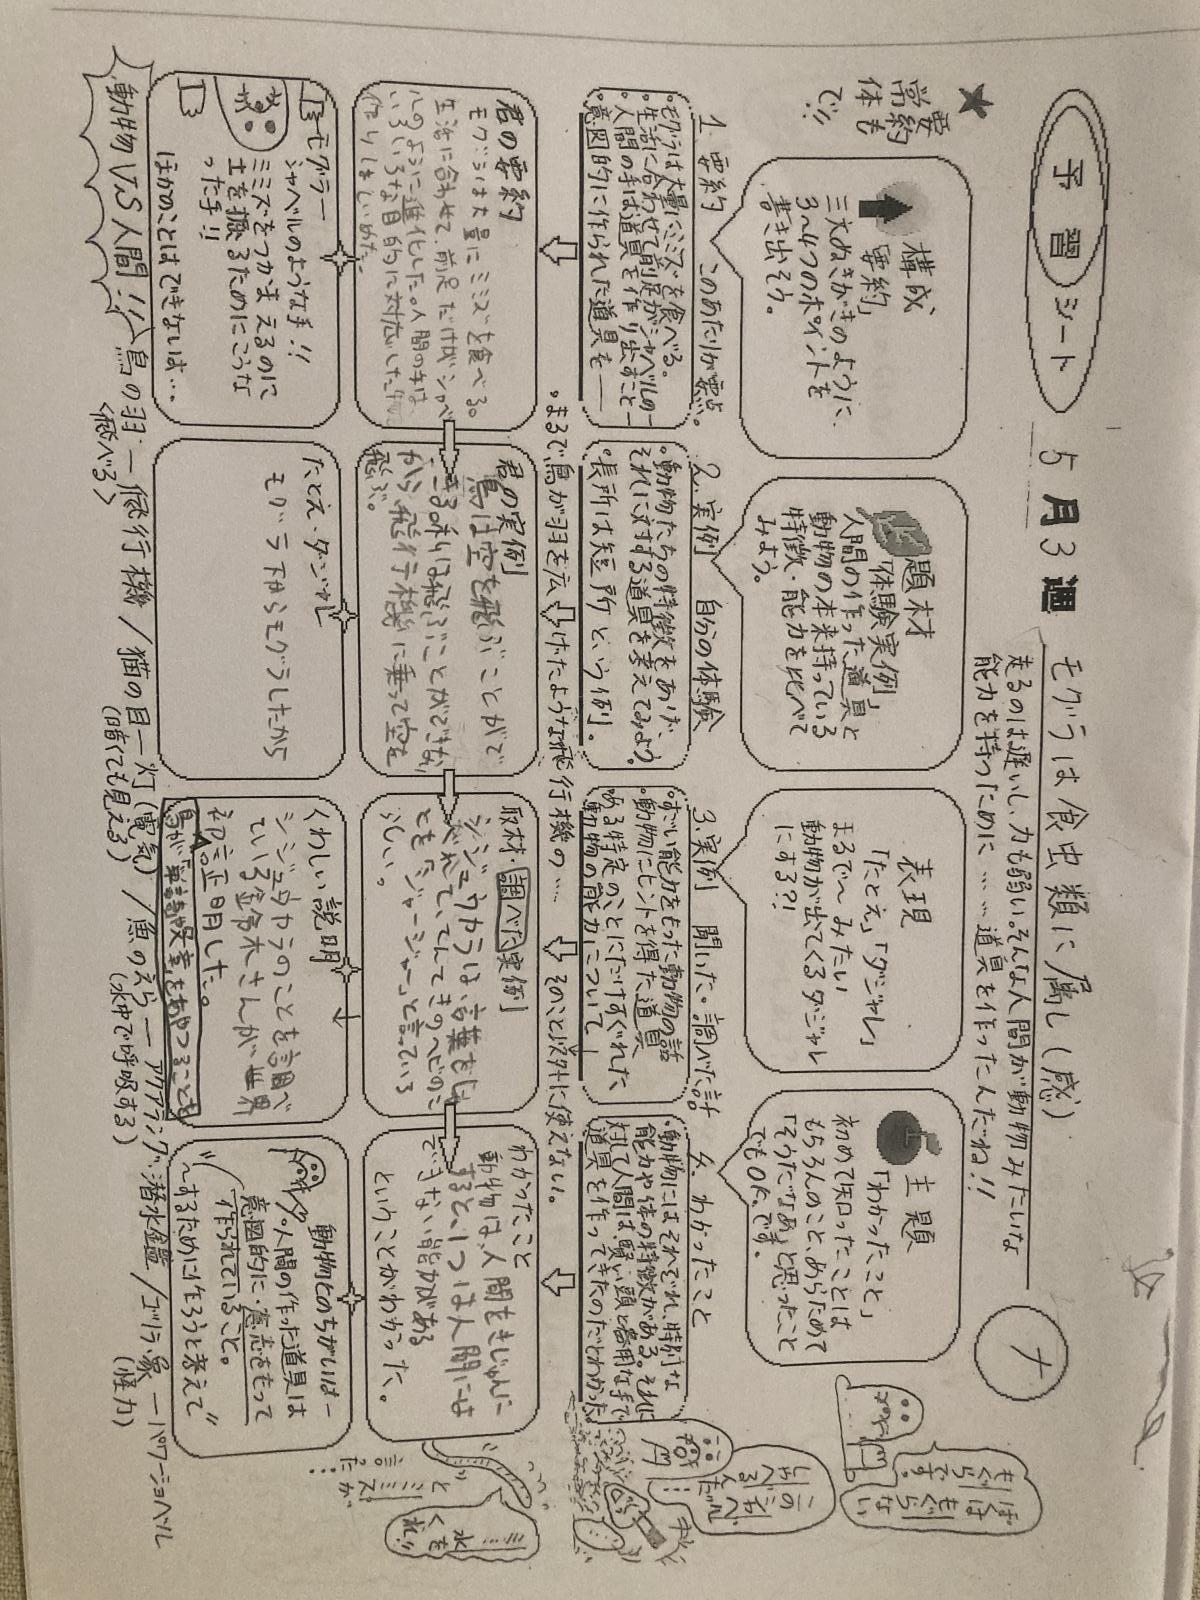 予習シート
5月3週
モグラは食虫類に属し(感)
走るのは遅いし、力も弱い。そんな人間が動物みたいな
能力を持つために……道具を作ったんだね!!
ナ
★
要約
常体も
で!!
構成
「要約」
三太ぬきがきのように、
3〜4つのポイントを
書き出そう。
題材
「体験実例」
人間の作った道具と
動物の本来持っている
特徴・能力を比べて
みよう。
表現
「たとえ」「ダジャレ」
まるで〜みたい
動物が出てくるダジャレ
にする?!
主題
「わかったこと」
初めて知ったことは
もちろんのこと、あらためて
「そうだなあ」と思ったこと
でもOK。です。
1. 要約 このあたりが要点かい。
・モグラは大量にミミズを食べる。
・生活に合わせて前足がシャベルの一
・人間の手は道具を作り出すこと一
・意図的に作られた道具を——
2. 実例 自分の体験
・動物たちの特徴をあげ、
それに対する道具を考えてみよう。
・長所は短所という例。
3. 実例 聞いた・調べた話
・すごい能力をもった動物の話
・動物にヒントを得た道具
・ある特定のことにだけすぐれた、
動物の能力について
4. わかったこと
・動物にはそれぞれ、特別な
能力や体の特徴がある。それに
対して人間は、賢い頭と器用な手で
道具を作ってきたのだとわかった。
・まるで鳥が羽を広げたような飛行機の…
そのこと以外に使えない。
君の要約
モグラは大量にミミズを食べる。
生活に合わせて、前足だけがシャベ
ルのように進化した。人間の手は
いろいろな目的に対応した物
作りはじめた。
君の実例
鳥は空を飛ぶことがで
きる。ぼくは飛ぶことができない
から、飛行機に乗って空を
飛ぶ。
取材・調べた実例
シジュウカラは、言葉をし
ゃべれていて、てんてきのヘビのこ
とも「ジャージャー」と言っている
らしい。
わかったこと
動物は、人間をきじゅんに
すると、1つは人間には
できない能力がある
ということがわかった。
モグラー
シャベルのような手!!
ミミズをつかまえるのに
土を掘るためにこうな
った手!!
ほかのことはできないは…
たとえ・ダジャレ
モグラ下からモグラしたから
くわしい説明
シジュウカラのことを調べ
ている鈴木さんが、世界
初、証明した。
鳥が「単語や文章」をあやつることを
動物とのちがいは—
人間の作った道具は
意図的に・意志をもって
作られていること。
“〜するために作ろうと考えて”
動物VS人間!!
鳥の羽—飛行機/猫の目—灯(電気)/魚のえら—アクアラング・潜水艦/ゴリラ・象—パワーショベル
<飛べる>
(暗くても見える)
(水中で呼吸する)
(怪力)
ぼくは
もぐらない
もぐらです。
とミミズが
言った!!
水を
くれ!!